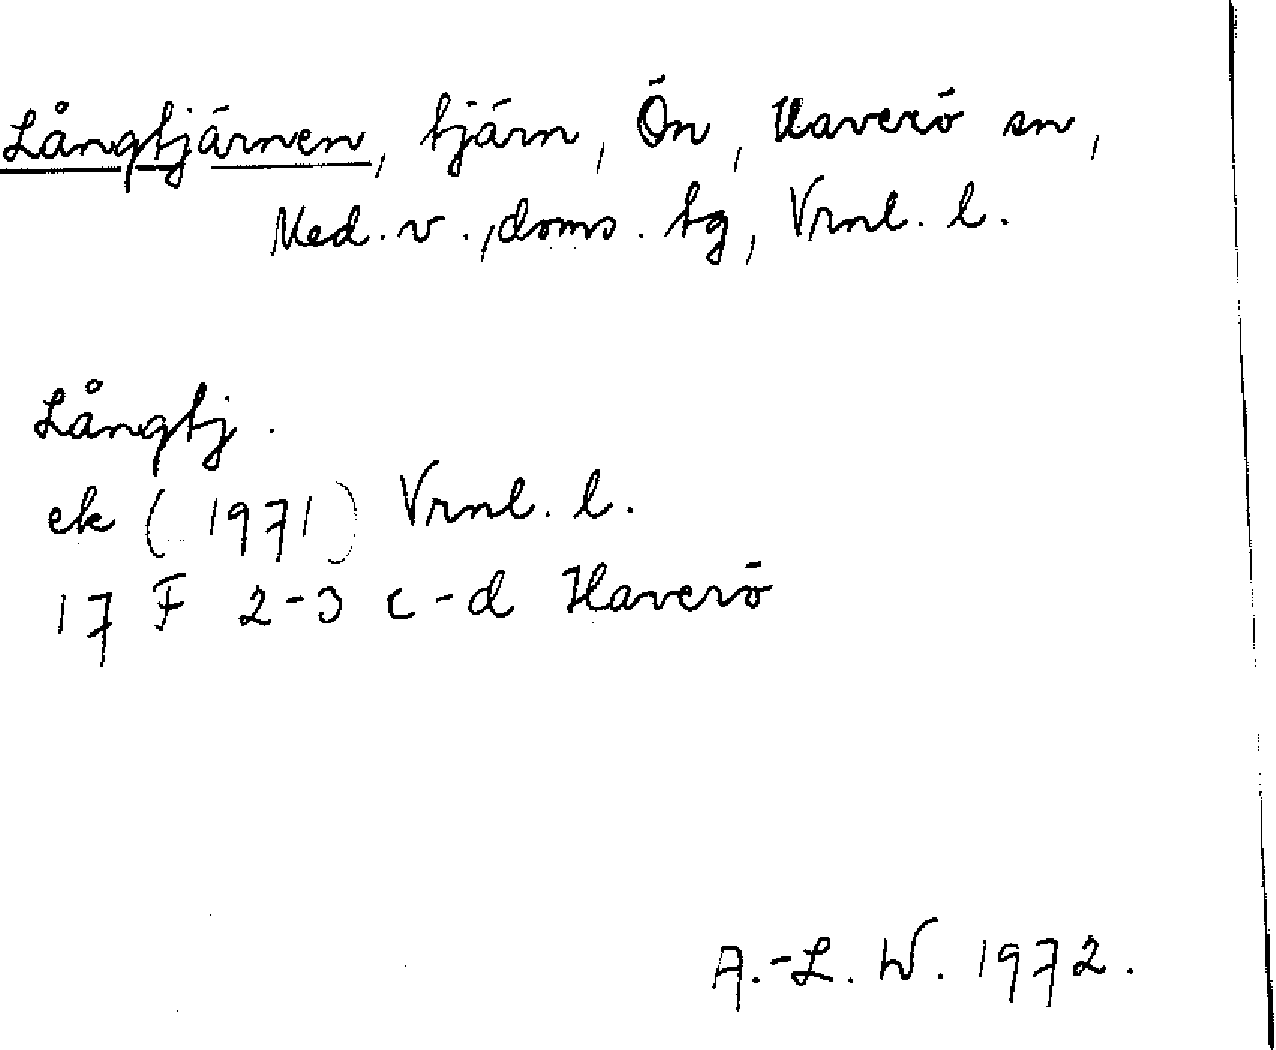 Långtjärnen, tjärn, Ön, Haverö sn,
Med. v., doms. tg, Vrnl. l.
Långtj.
ek (1971) Vrnl. l.
17 F 2-3 c-d Haverö
A.-L. W. 1972.